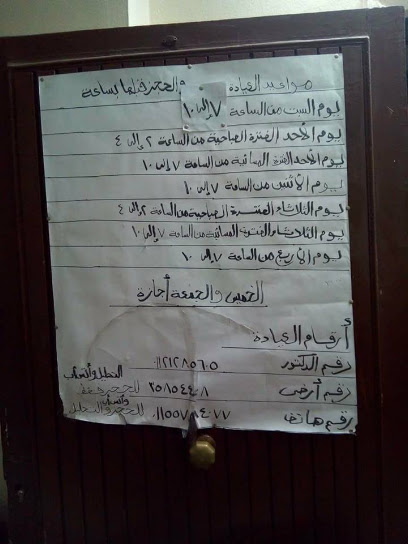 مواعيد العيادة والحجز قبلها بساعة
يوم السبت من الساعة ٧ إلى ١٠
يوم الأحد الفترة الصباحية من الساعة ٢ إلى ٤
يوم الأحد الفترة المسائية من الساعة ٧ إلى ١٠
يوم الأثنين من الساعة ٧ إلى ١٠
يوم الثلاثاء الفترة الصباحية من الساعة ٢ إلى ٤
يوم الثلاثاء الفترة المسائية من الساعة ٧ إلى ١٠
يوم الأربع من الساعة ٧ إلى ١٠
الخميس والجمعة أجازة
أرقام العيادة:
رقم الدكتور
رقم أرضى ٢٥٨٥٤٤٠٨ للحجز
رقم هاتف للحجز